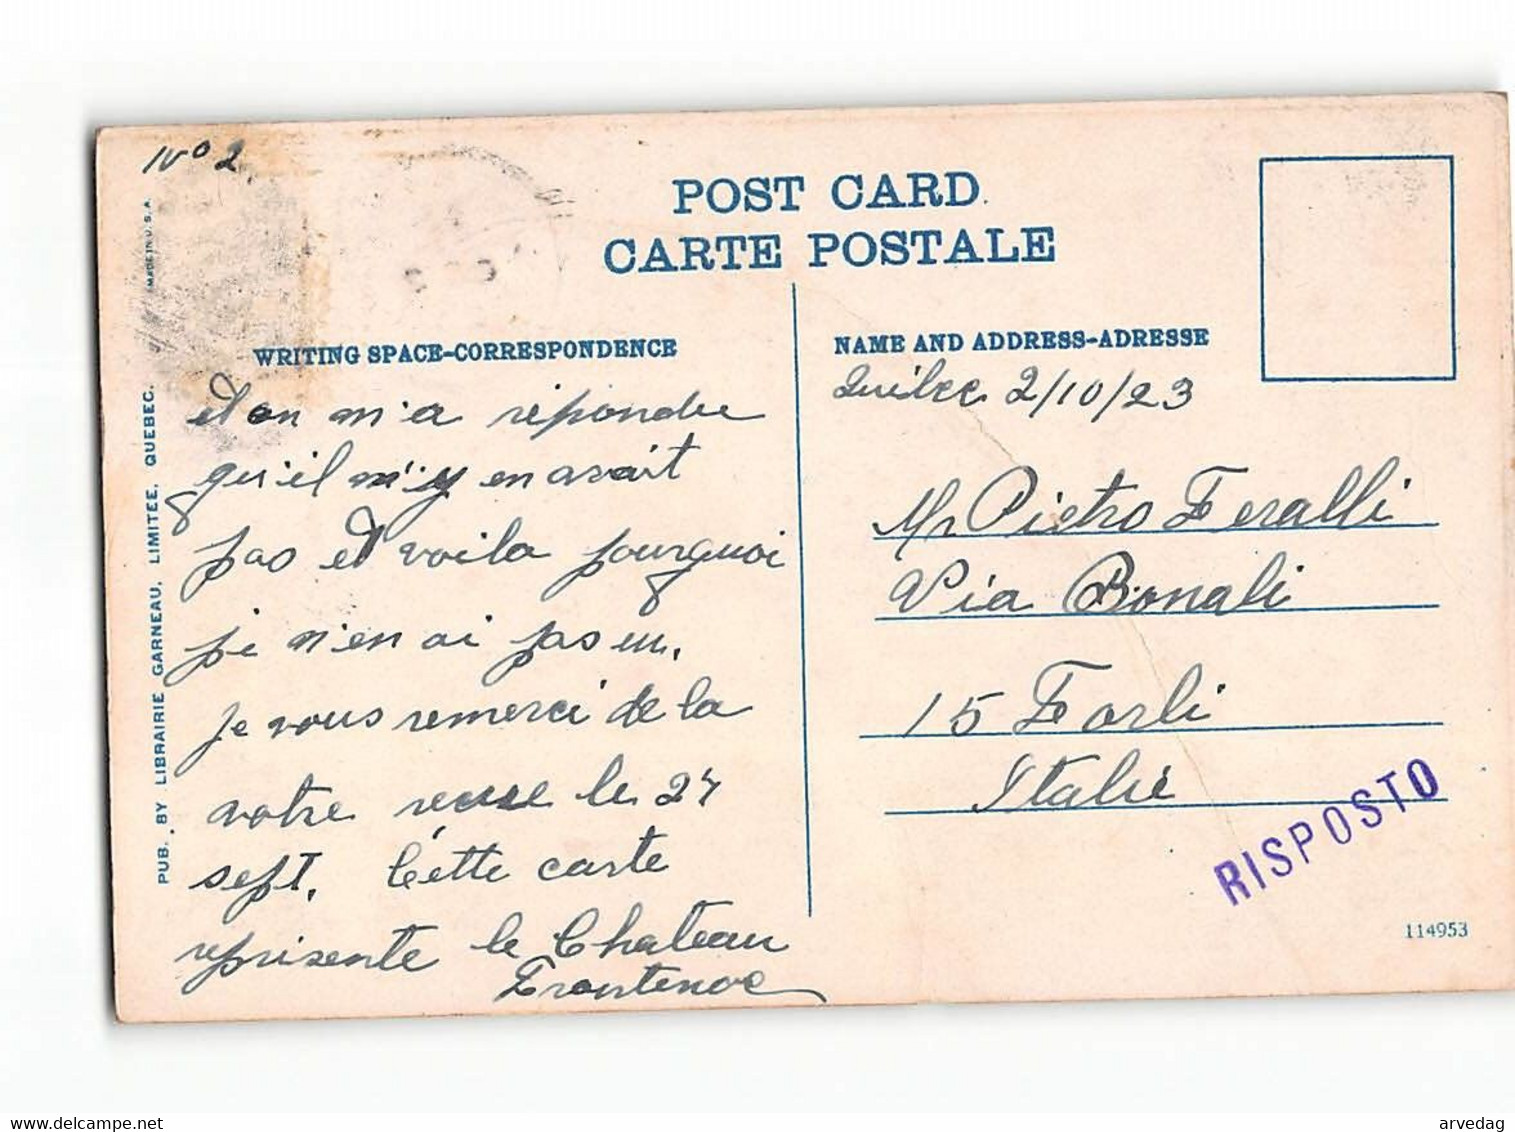 No 2.
POST CARD
CARTE POSTALE
WRITING SPACE-CORRESPONDENCE
et on m'a répondu
qu'il n'y en avait
pas et voila pourquoi
je n'en ai pas eu.
je vous remerci de la
votre recue le 27
sept. Cette carte
represente le Chateau
Frontenac
NAME AND ADDRESS-ADRESSE
Quebec 2/10/23
Mr Pietro Feralli
Via Bonali
15 Forli
Italie
RISPOSTO
114953
MADE IN U.S.A.
PUB. BY LIBRAIRIE GARNEAU, LIMITEE, QUEBEC.
www.delcampe.net
arvedag